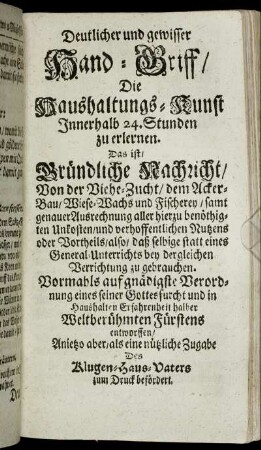 Deutlicher und gewisser
Hand-Griff/
Die
Haushaltungs-Kunst
Innerhalb 24. Stunden
zu erlernen.
Das ist/
Gründliche Nachricht/
Von der Viehe-Zucht/ dem Acker-
Bau/ Wiese-Wachs und Fischerey/ samt
genauer Ausrechnung aller hierzu benöthig-
ten Unkosten/ und verhoffentlichen Nutzens
oder Vortheils/ also/ daß selbige statt eines
General-Unterrichts bey dergleichen
Verrichtung zu gebrauchen.
Vormahls auf gnädigste Verord-
nung eines seiner Gottesfurcht und in
Haushalten Erfahrenheit halber
Weltberühmten Fürstens
entworffen/
Anietzo aber/ als eine nützliche Zugabe
Des
Klugen-Haus-Vaters
zum Druck befördert.